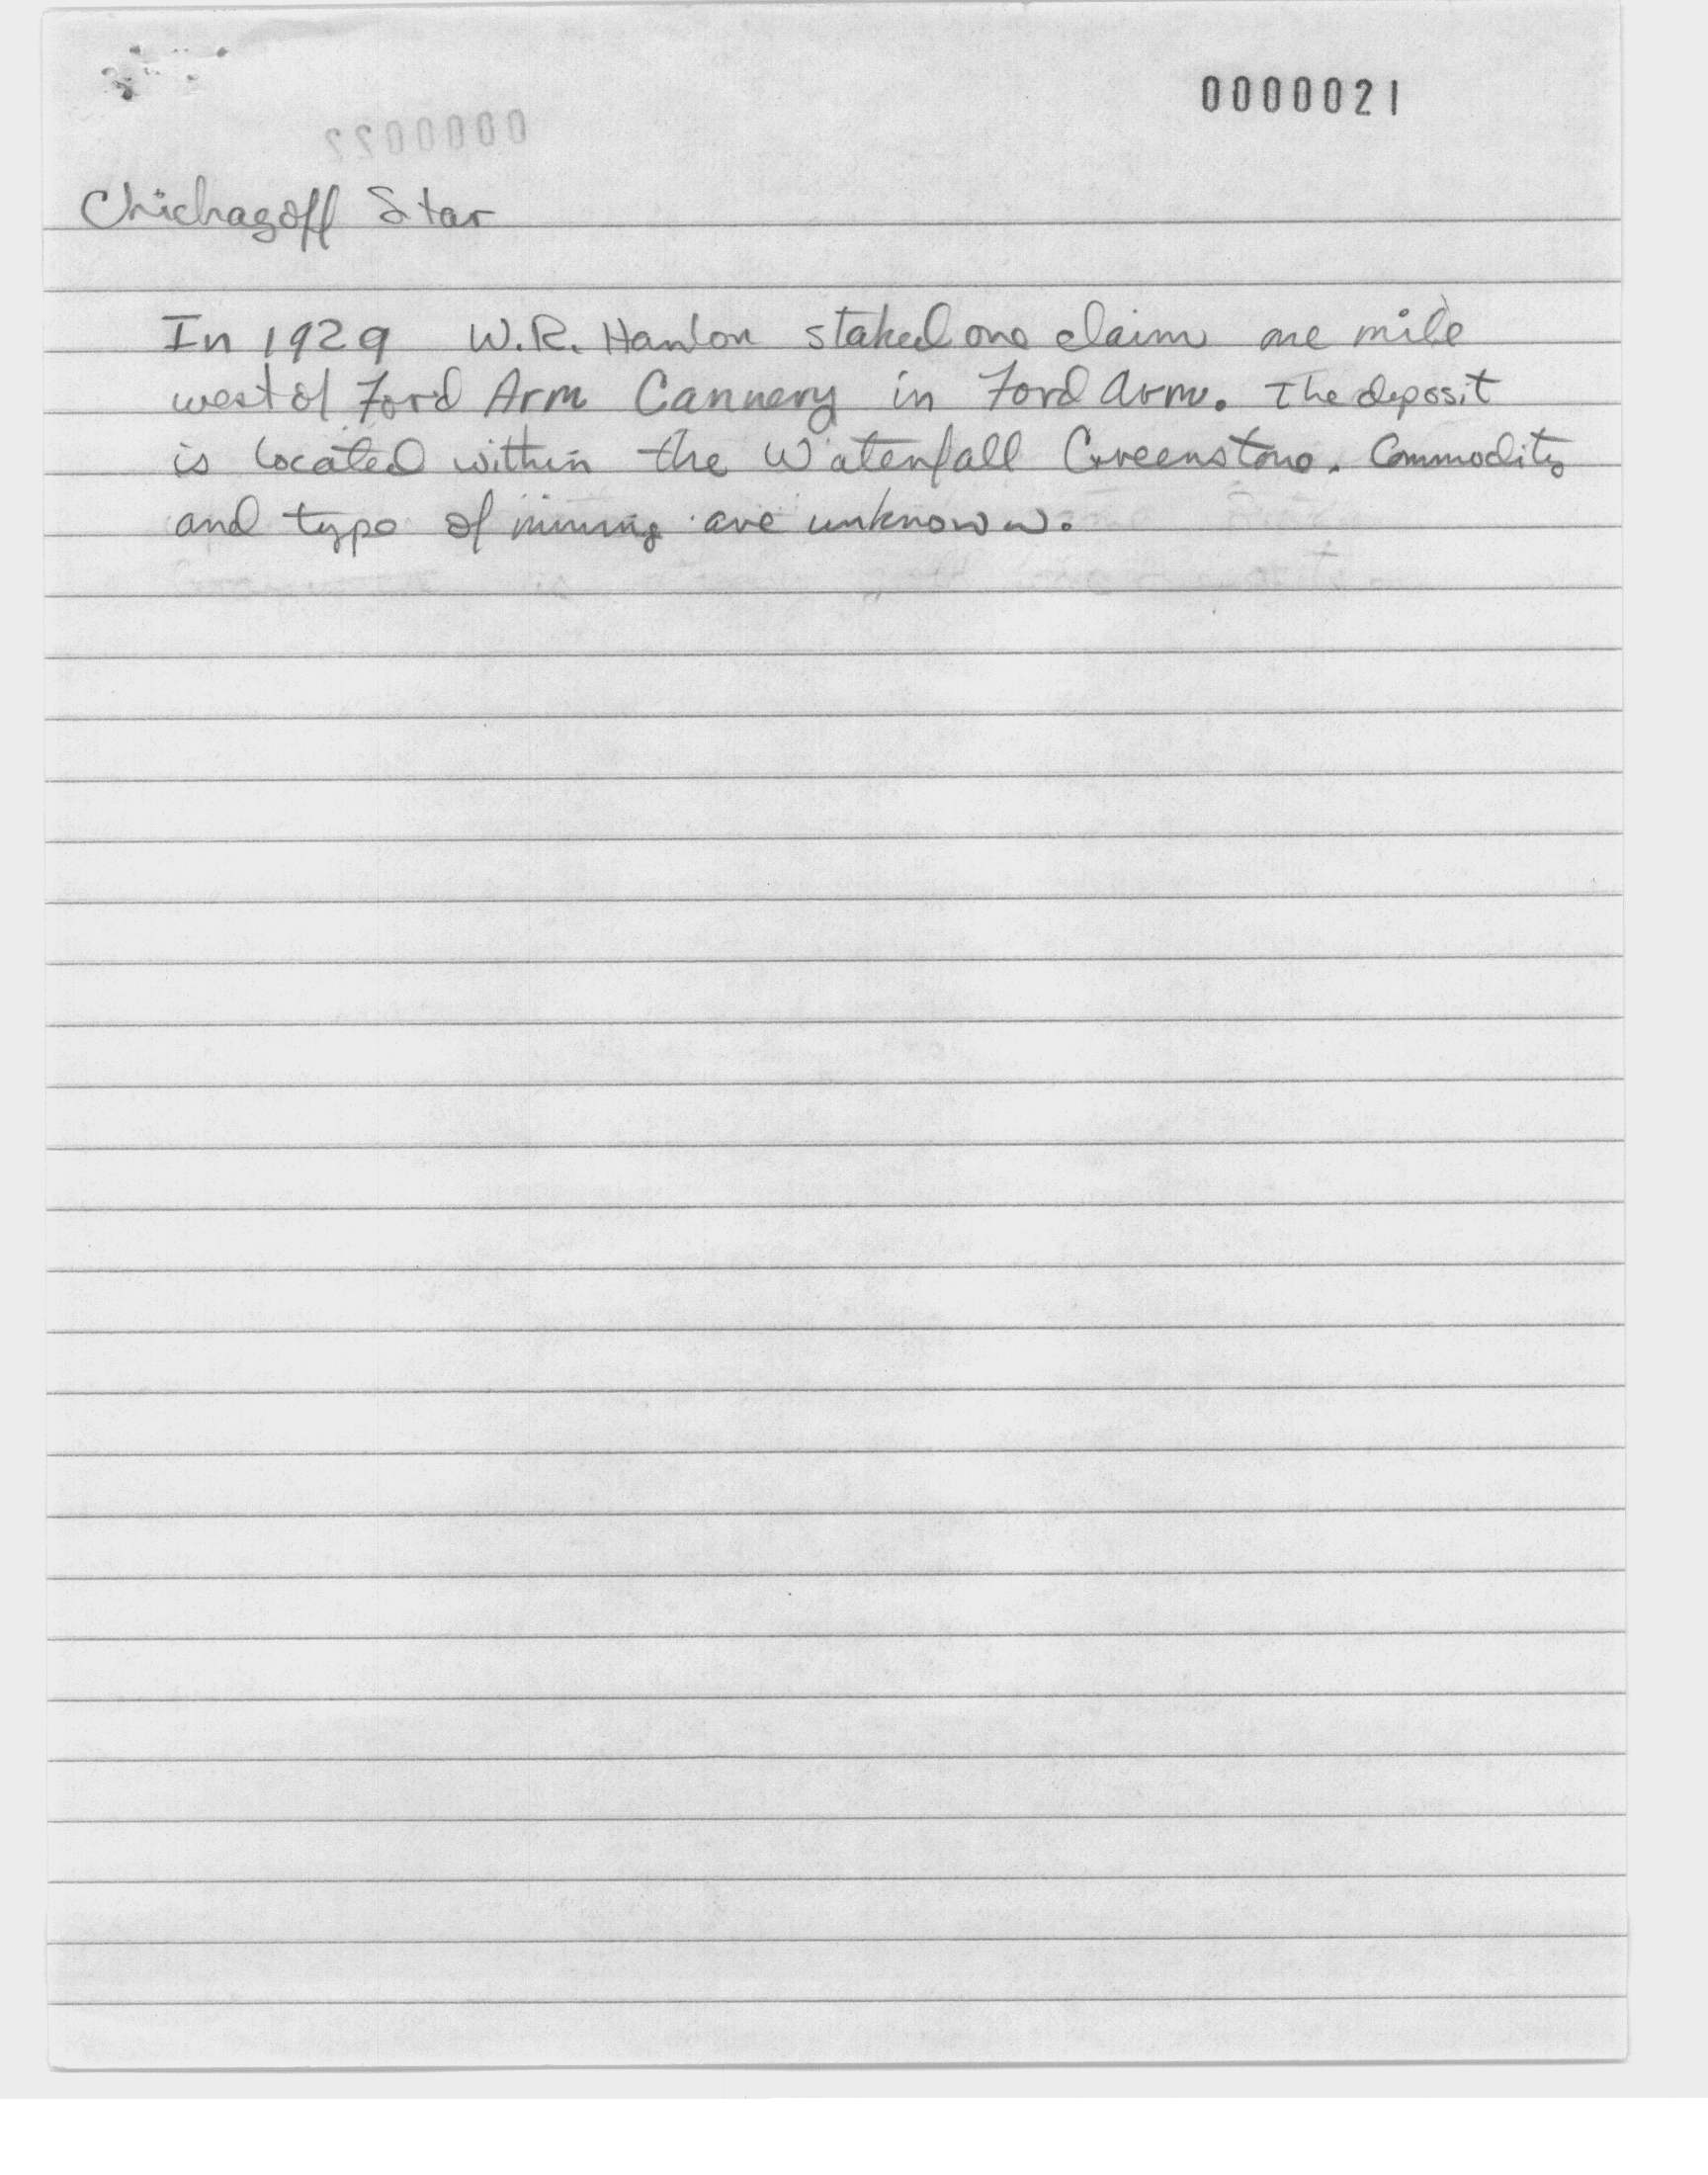 0000021
0000022
Chichagoff Star
In 1929 W.R. Hanlon staked one claim one mile
west of Ford Arm Cannery in Ford Arm. The deposit
is located within the Waterfall Greenstone. Commodity
and type of mining are unknown.